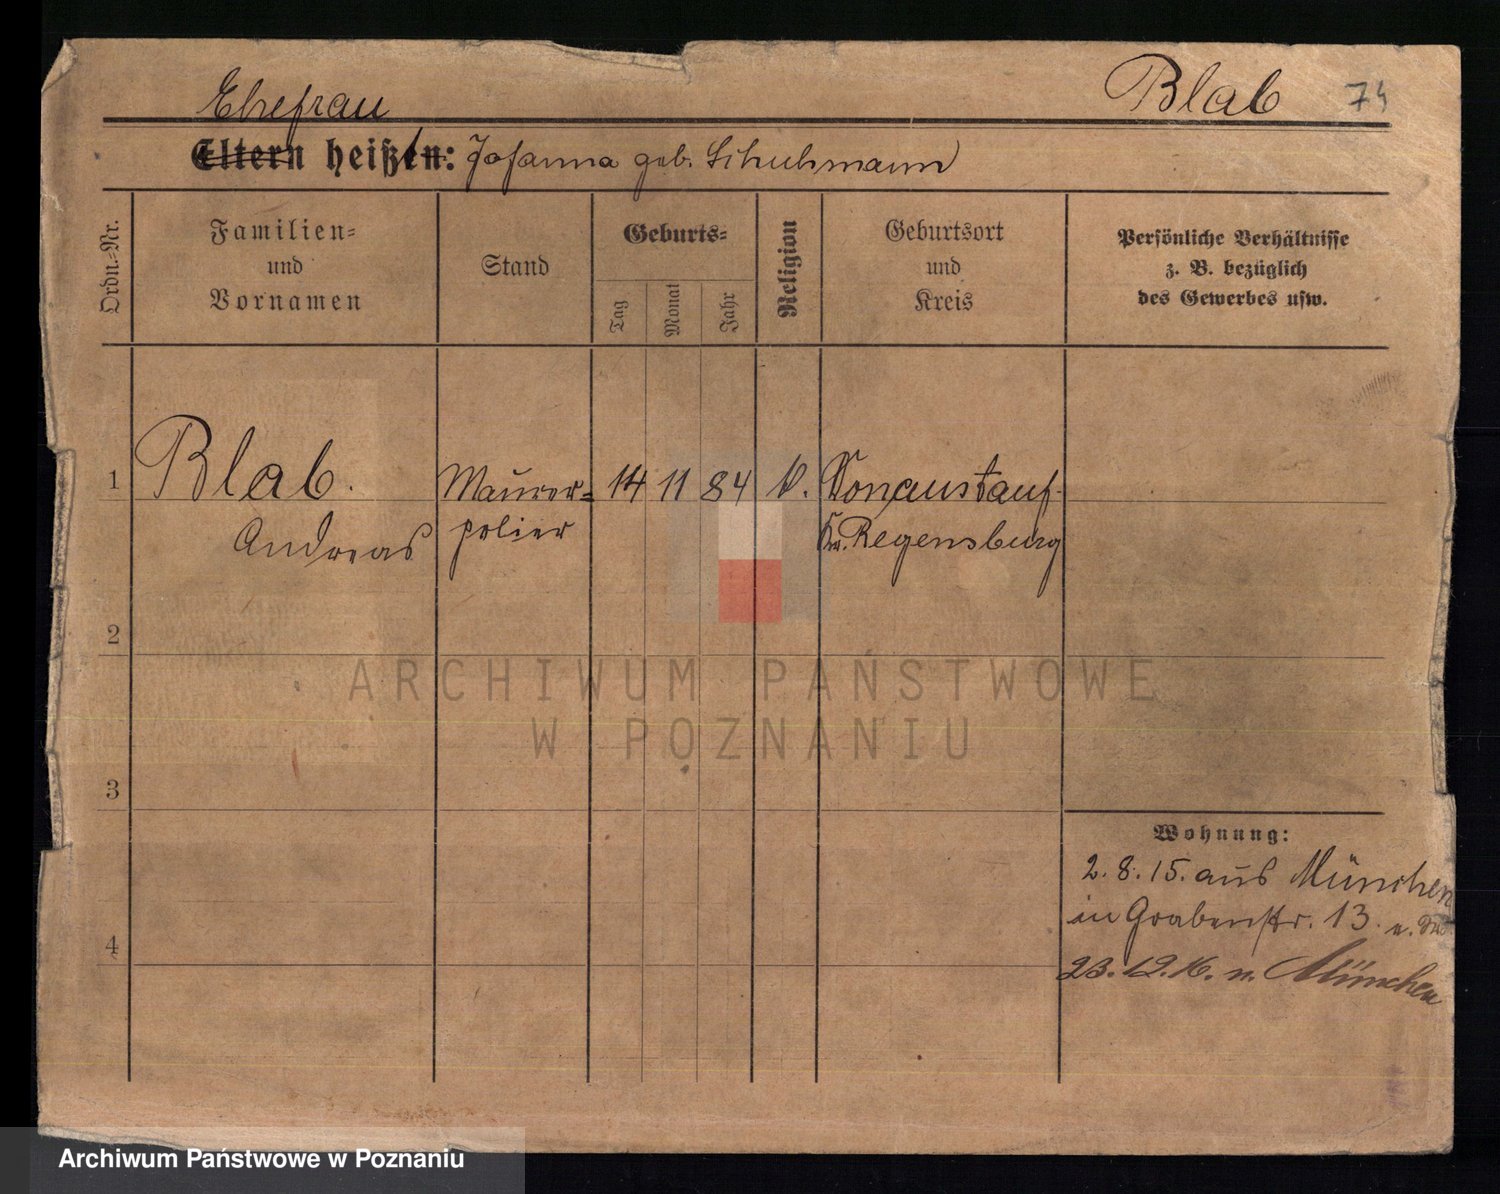 Ehefrau
Blab 74
Eltern heißen: Johanna geb. Schuhmann
Ordn.-Nr.
Familien-
und
Vornamen
Stand
Geburts-
Tag
Monat
Jahr
Religion
Geburtsort
und
Kreis
Persönliche Verhältnisse
z. B. bezüglich
des Gewerbes usw.
1 Blab. Maurer- 14 11 84 k. Donaustauf
Andreas polier Kr. Regensburg
2
3
4
ARCHIWUM PAŃSTWOWE
W POZNANIU
Wohnung:
2. 8. 15. aus München
in Grabenstr. 13.
23. 12. 16. n. München
Archiwum Państwowe w Poznaniu